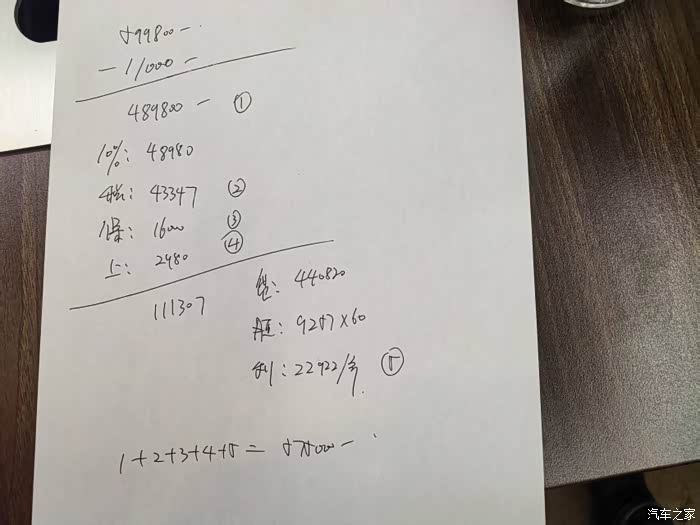 599800-
-110000-
489800- ①
10%: 48980
税: 43347 ②
保: 16000 ③
上: 2980 ④
111307
贷: 440820
9257×60
利: 22922/年 ⑤
1+2+3+4+5= 575000-
汽车之家